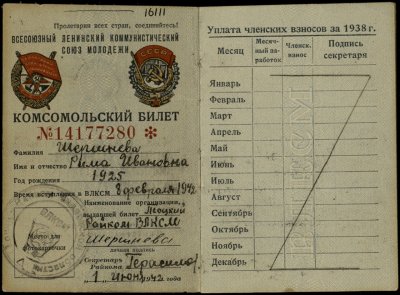 16/11
Пролетарии всех стран, соединяйтесь!
ВСЕСОЮЗНЫЙ ЛЕНИНСКИЙ КОММУНИСТИЧЕСКИЙ
СОЮЗ МОЛОДЕЖИ
КОМСОМОЛЬСКИЙ БИЛЕТ
№14177280 *
Фамилия Шершнева
Имя и отчество Рима Ивановна
Год рождения 1925
Время вступления в ВЛКСМ февраля 1942
Наименование организации,
выдавшей билет
Райком ВЛКСМ
Место для
фотокарточки
Шершнева
личная подпись
Секретарь
Райкома Герасимов
1 июня 1942 года
Уплата членских взносов за 1938 г.
Месяц
Месячный заработок
Членск. взнос
Подпись секретаря
Январь
Февраль
Март
Апрель
Май
Июнь
Июль
Август
Сентябрь
Октябрь
Ноябрь
Декабрь